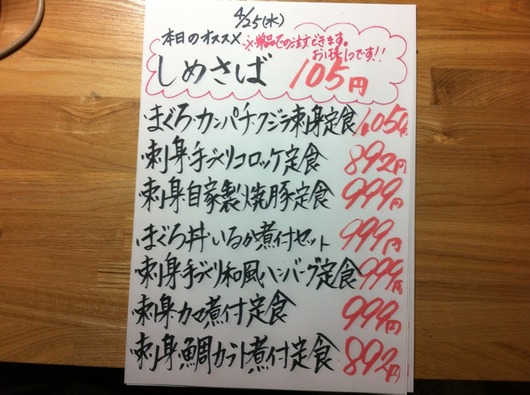 4/25(水)
本日のオススメ
※単品での注文できます。
お1人様1つです!!
しめさば 105円
まぐろカンパチクジラ刺身定食 1,050円
刺身手づくりコロッケ定食 892円
刺身自家製焼豚定食 999円
まぐろ丼いるか煮付セット 999円
刺身手づくり和風ハンバーグ定食 999円
刺身カマ煮付定食 999円
刺身鯛カブト煮付定食 892円